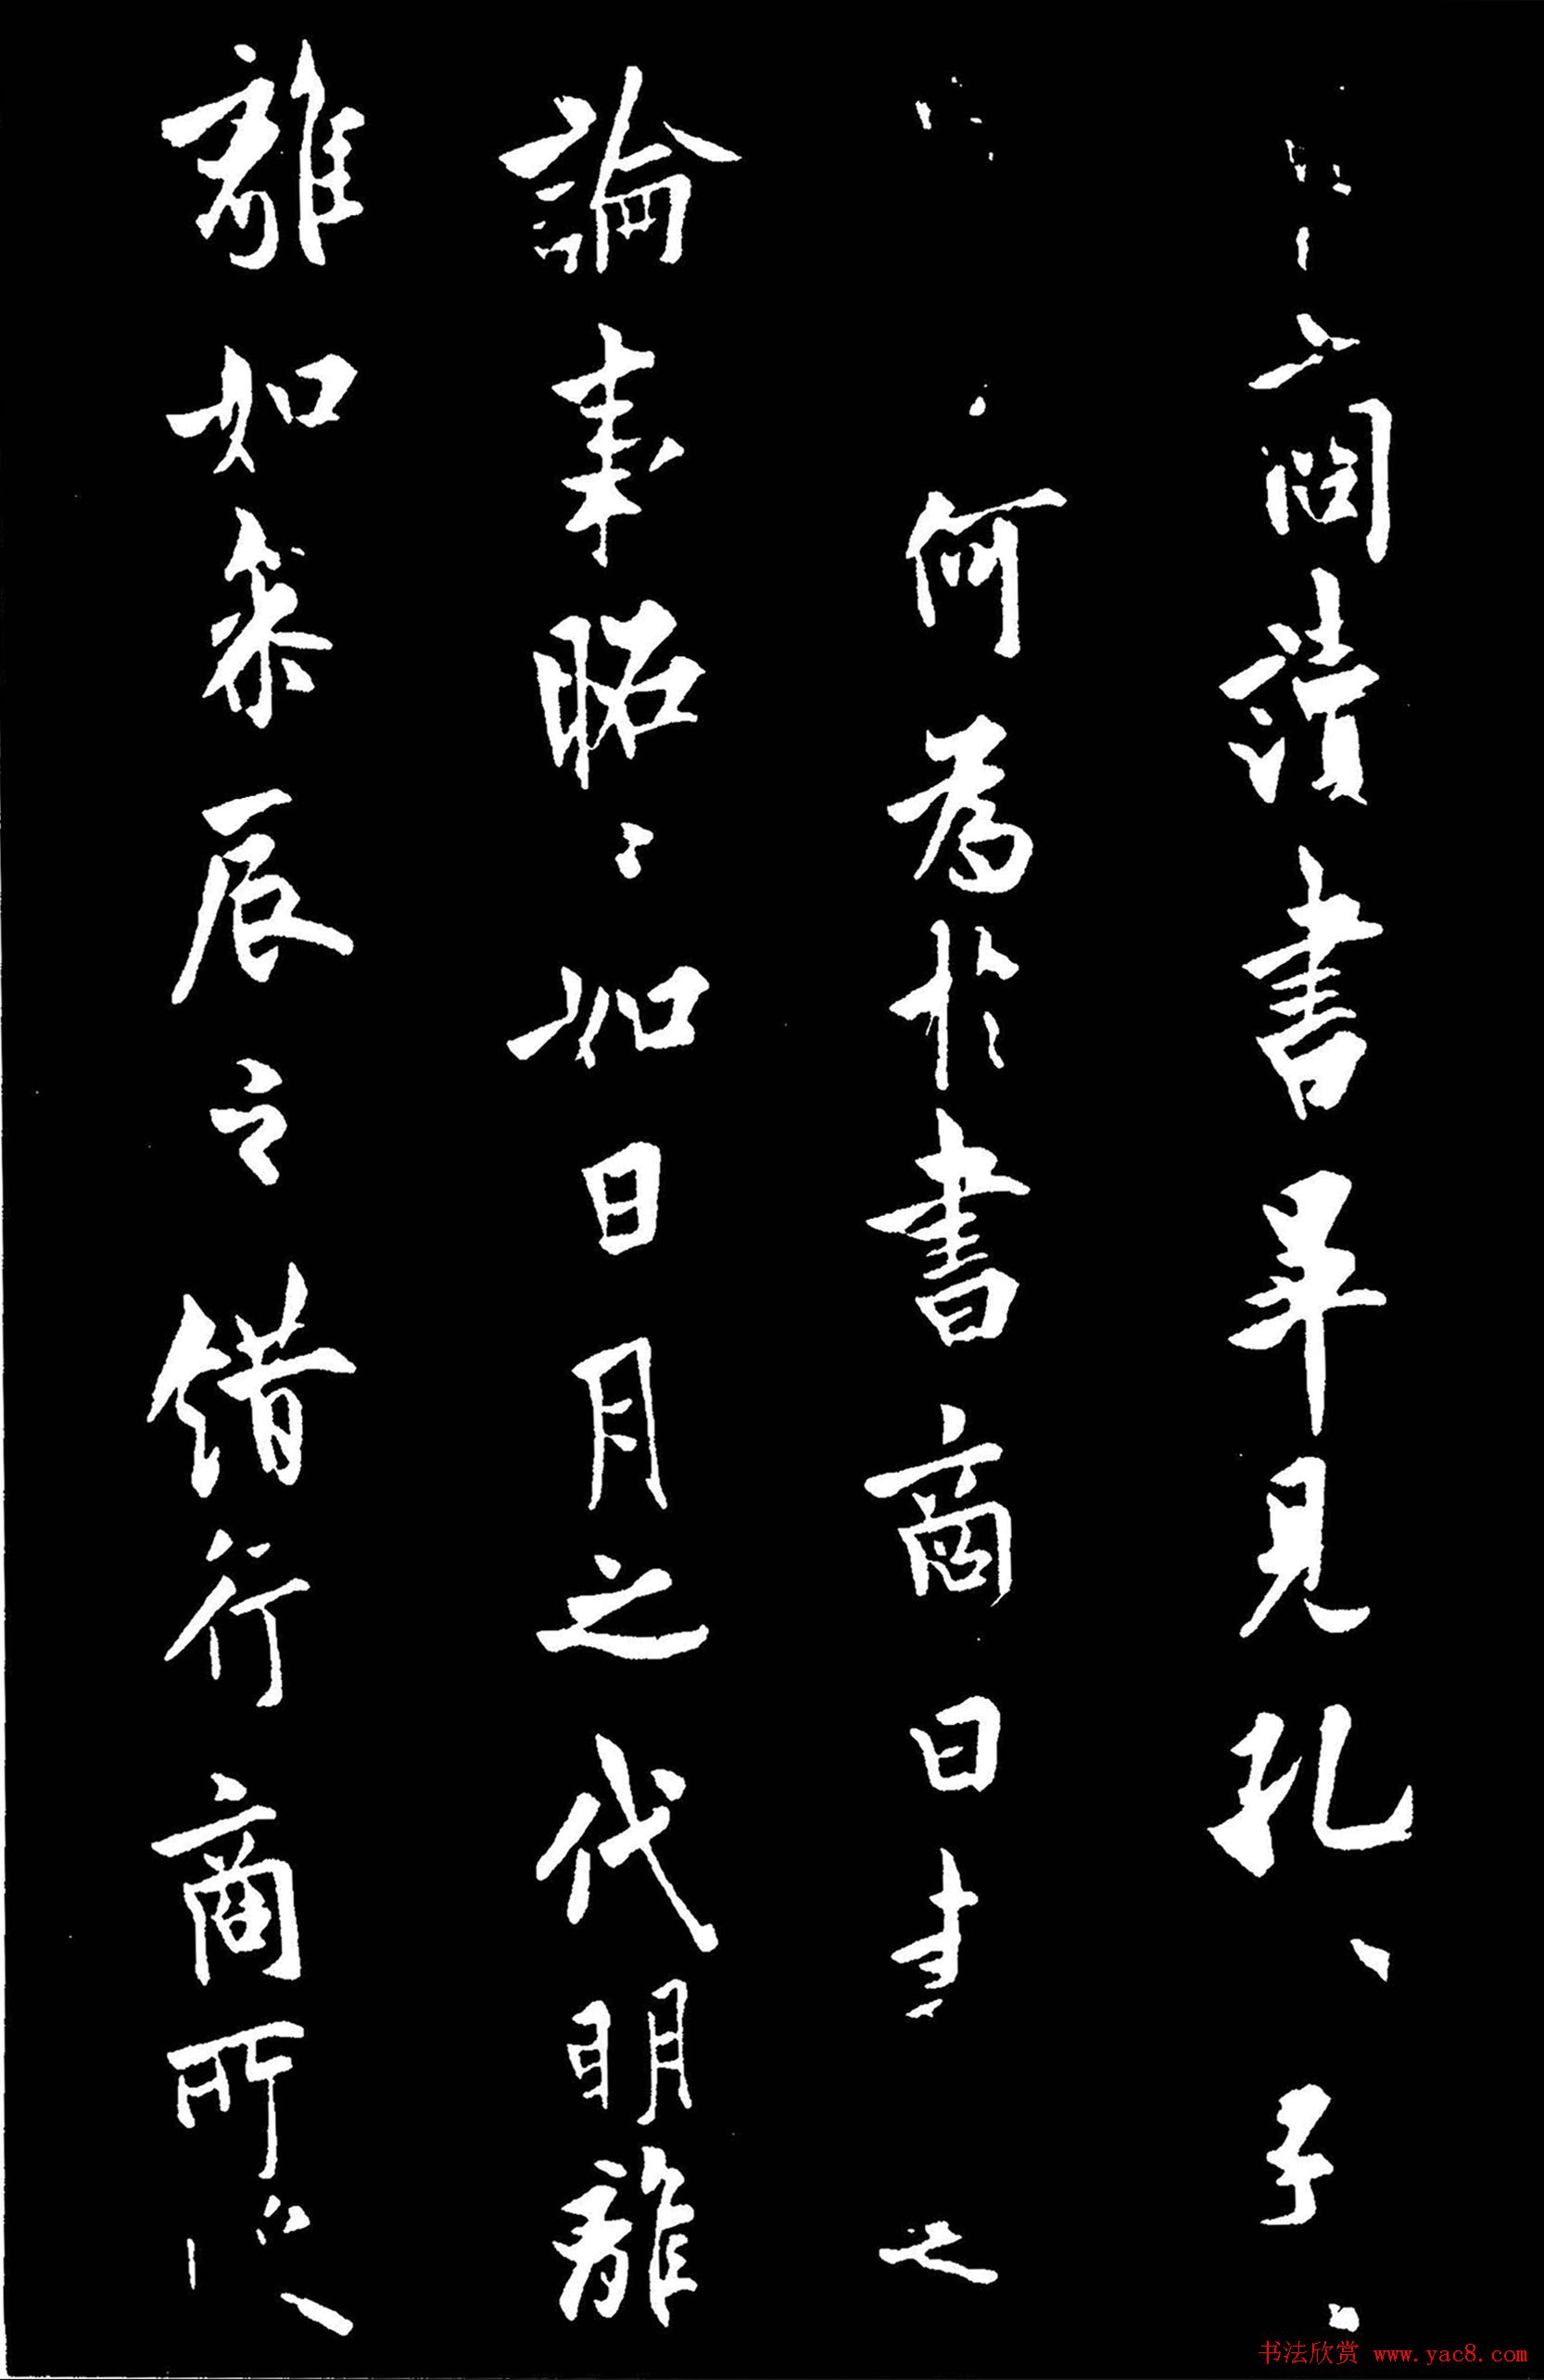 商讀書畢見孔子
何為於書商曰書之
論事昭〻如日月之代明離
離如參辰之錯行商所
书法欣赏 www.yac8.com